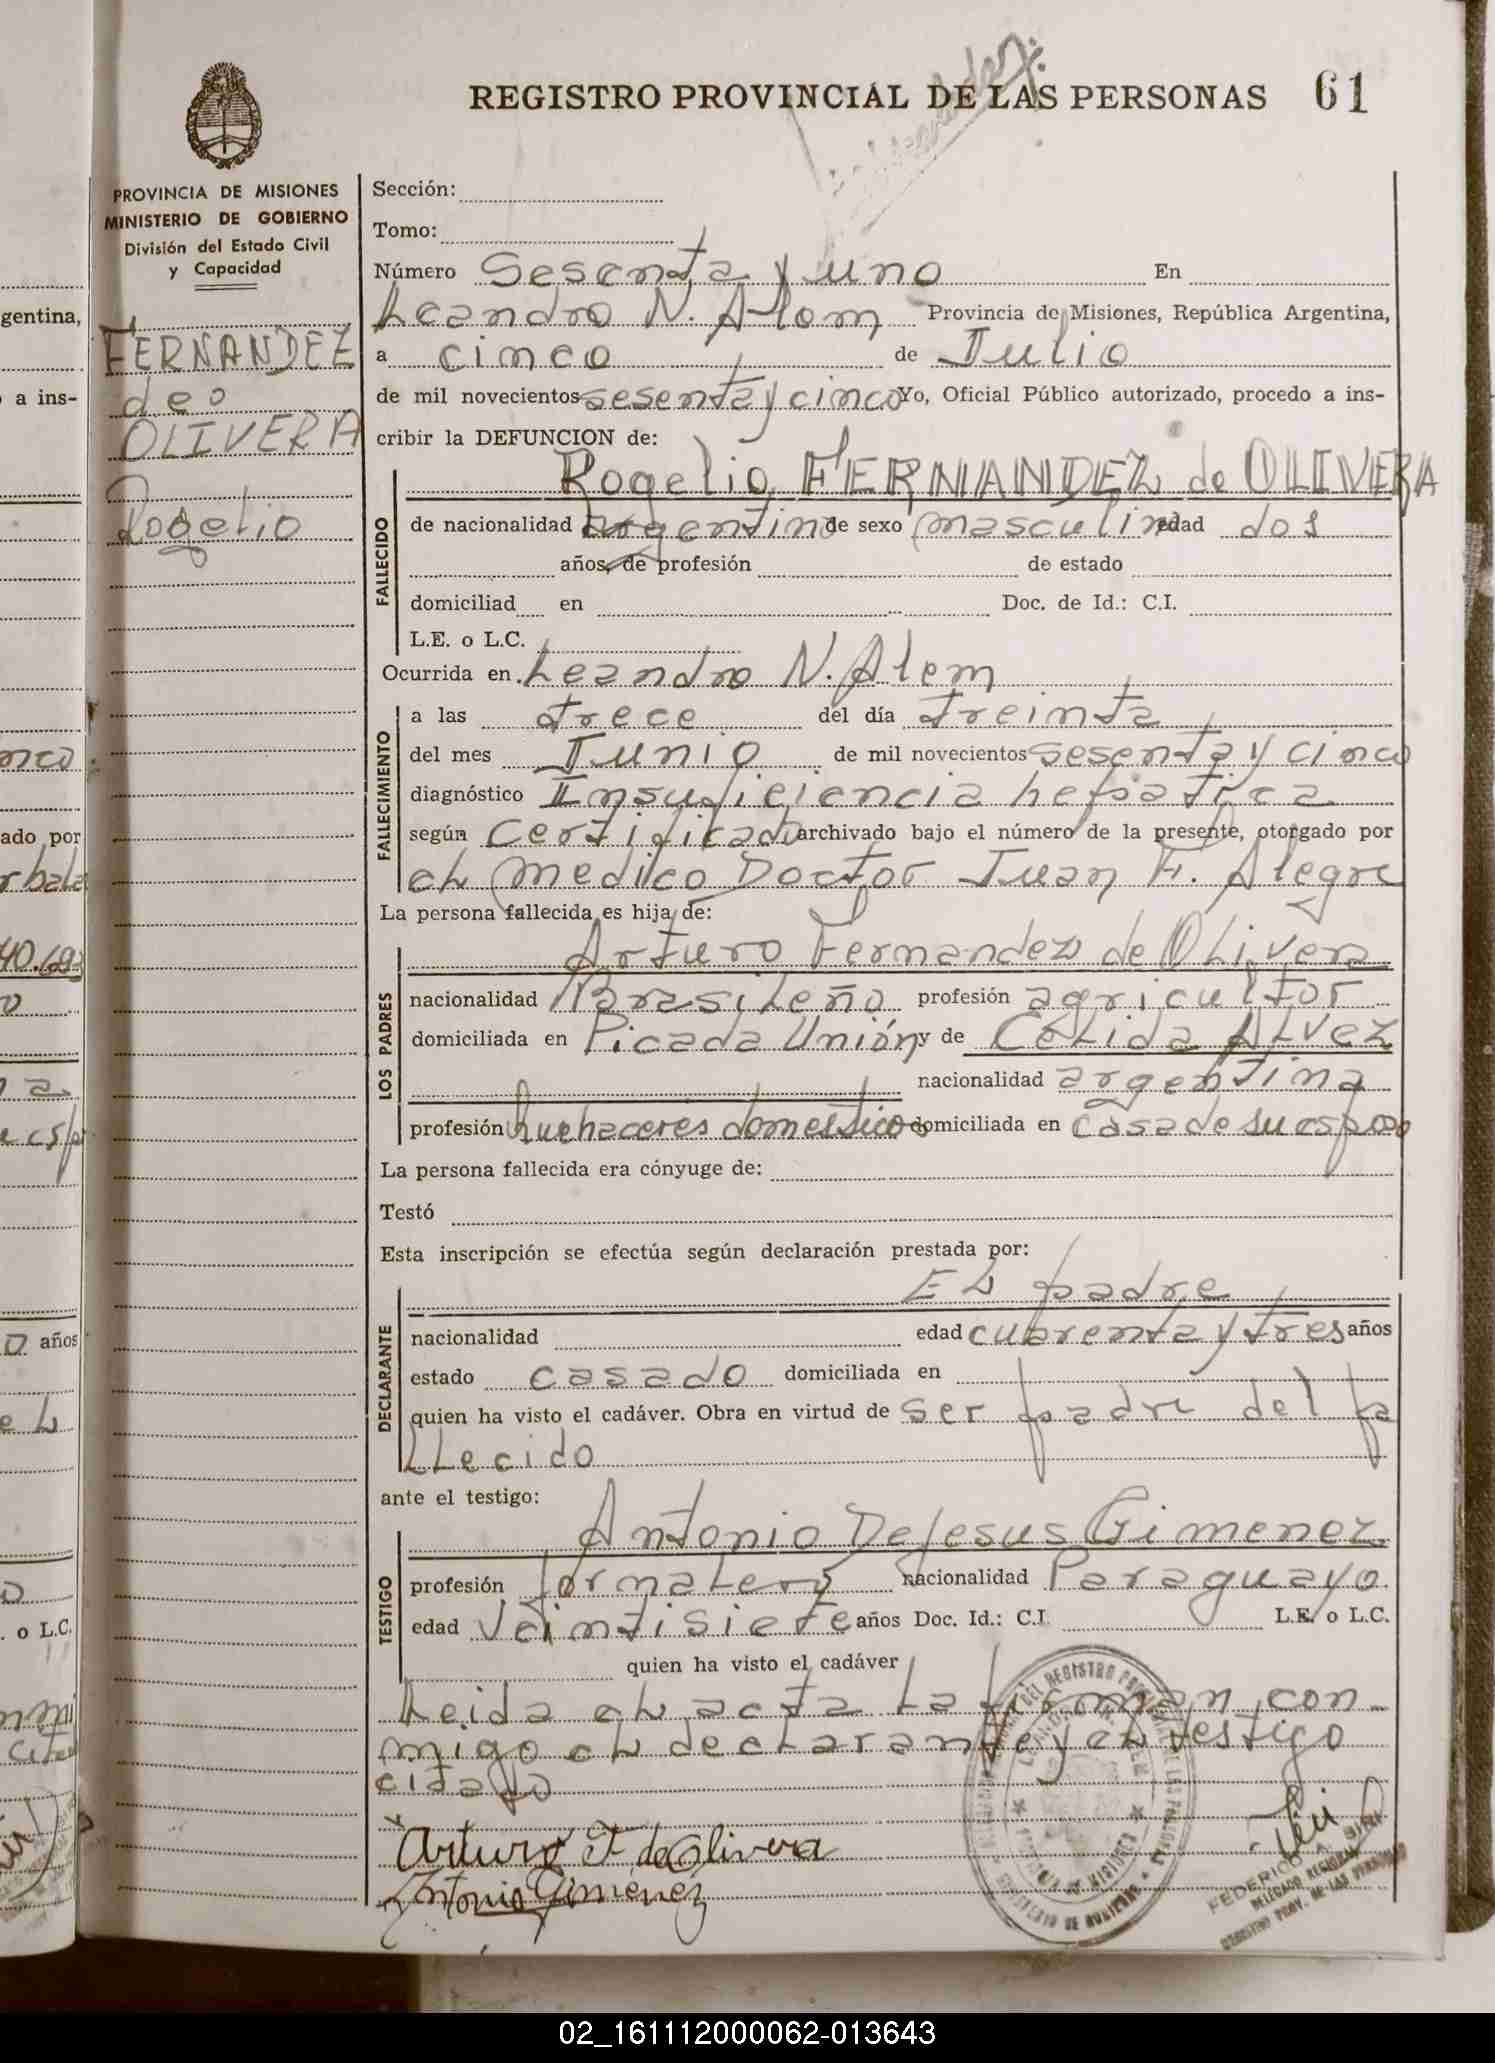 REGISTRO PROVINCIAL DE LAS PERSONAS 61
PROVINCIA DE MISIONES
MINISTERIO DE GOBIERNO
División del Estado Civil
y Capacidad
FERNANDEZ
de o
OLIVERA
Rogelio
Sección:
Tomo:
Número Sesenta y uno En
Leandro N. Alem Provincia de Misiones, República Argentina,
a cinco de Julio
de mil novecientos sesenta y cinco Yo, Oficial Público autorizado, procedo a ins-
cribir la DEFUNCION de:
Rogelio FERNANDEZ de OLIVERA
FALLECIDO
de nacionalidad argentino de sexo masculino edad dos
años, de profesión de estado
domiciliad en Doc. de Id.: C.I.
L.E. o L.C.
Ocurrida en Leandro N. Alem
FALLECIMIENTO
a las trece del día treinta
del mes Junio de mil novecientos sesenta y cinco
diagnóstico Insuficiencia hepatica
según Certificado archivado bajo el número de la presente, otorgado por
el medico Doctor Juan F. Alegre
La persona fallecida es hija de:
Arturo Fernandez de Olivera
LOS PADRES
nacionalidad Brasileño profesión agricultor
domiciliada en Picada Unión y de Celida Alvez
nacionalidad argentina
profesión quehaceres domesticos domiciliada en casa de su esposo
La persona fallecida era cónyuge de:
Testó
Esta inscripción se efectúa según declaración prestada por:
El padre
DECLARANTE
nacionalidad edad cuarenta y tres años
estado casado domiciliada en
quien ha visto el cadáver. Obra en virtud de ser padre del fa
llecido
ante el testigo:
Antonio DeJesus Gimenez
TESTIGO
profesión jornalero nacionalidad Paraguayo
edad Veintisiete años Doc. Id.: C.I. L.E. o L.C.
quien ha visto el cadáver
Leida el acta la firman con-
migo el declarante y el testigo
citado
Arturo F. de Olivera
Antonio Gimenez
FEDERICO A.
DELEGADO REGIONAL
REGISTRO PROV. DE LAS PERSONAS
gentina,
a ins-
ado por
40.693
años
. o L.C.
02_161112000062-013643